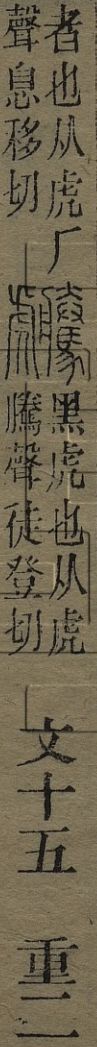 者也从虎厂
聲息移切
黑虎也从虎
騰聲徒登切
文十五　重二